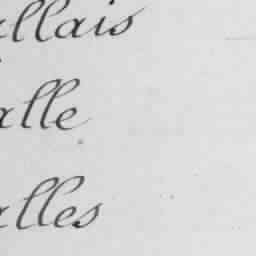 allais
alle
alles